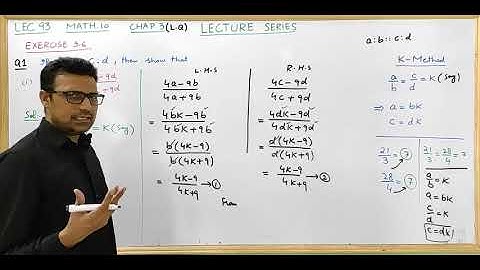 LEC 93 MATH.10 CHAP 3(L.a) LECTURE SERIES
EXERCISE 3.6
Q1 : d, then show that
(i)
- 9d
+ 9d
Sol:
= K (Say)
L.H.S
= 4a-9b / 4a+9b
= 4bK-9b / 4bK+9b
= b(4K-9) / b(4K+9)
= 4K-9 / 4K+9 → ①
From
R.H.S
= 4c-9d / 4c+9d
= 4dK-9d / 4dK+9d
= d(4K-9) / d(4K+9)
= 4K-9 / 4K+9 → ②
a:b::c:d
K-Method
a/b = c/d = K (Say)
⇒ a = bK
c = dK
21/3 = 7
28/4 = 7
21/3 = 28/4 = 7
a/b = K
a = bK
c/d = K
c = dK